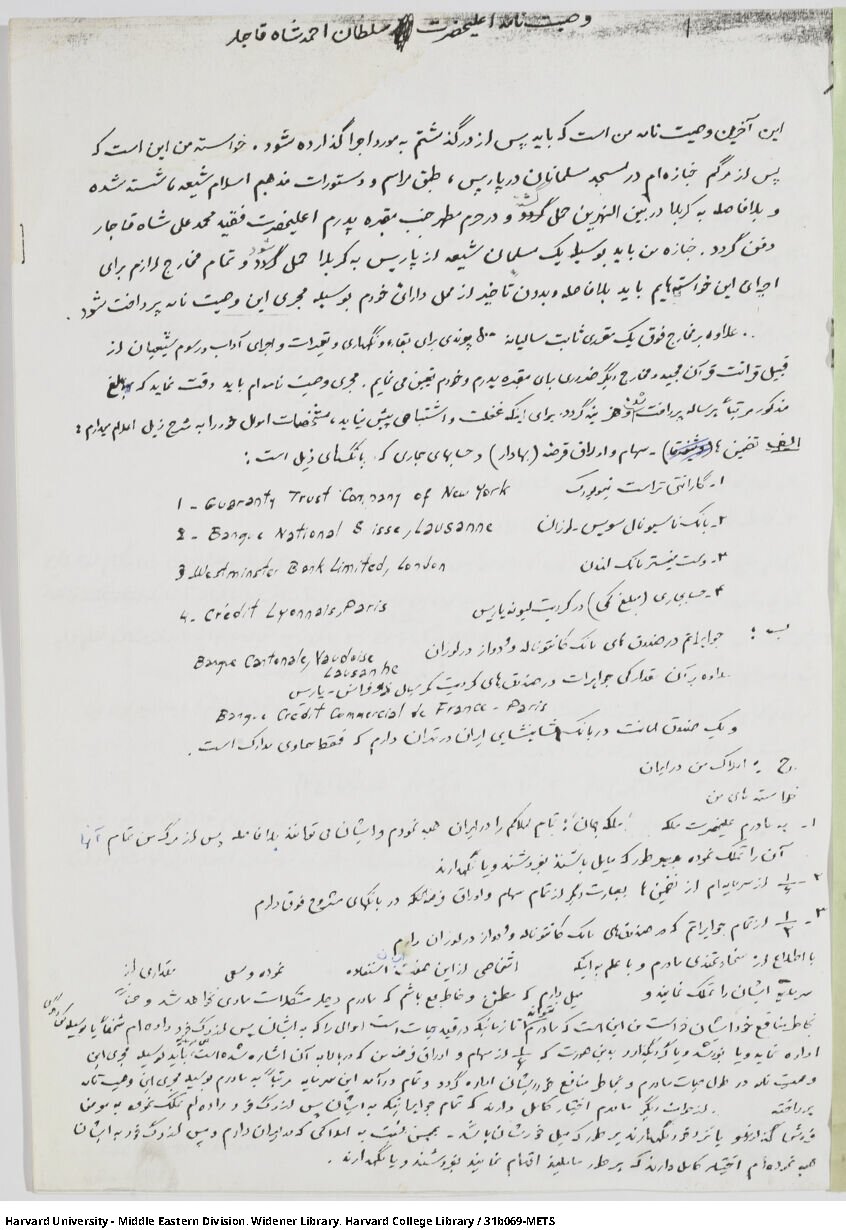 وصیت نامه اعلیحضرت سلطان احمد شاه قاجار
این آخرین وصیت نامه من است که باید پس از درگذشتم به مورد اجرا گذارده شود. خواسته من این است که
پس از مرگم جنازه‌ام در مسجد مسلمانان در پاریس، طبق مراسم و دستورات مذهبم اسلام شیعه، شسته شده
و بلافاصله به کربلا در بین النهرین حمل گردد و در حرم مطهر جنب مقبره پدرم اعلیحضرت فقید محمد علی شاه قاجار
دفن گردد. جنازه من باید بوسیله یک مسلمان شیعه از پاریس به کربلا حمل گردد و تمام مخارج لازم برای
اجرای این خواسته‌هایم باید بلافاصله و بدون تأخیر از محل دارائی خودم بوسیله مجری این وصیت نامه پرداخت شود.
علاوه بر مخارج فوق یک مقرری ثابت سالیانه ۵۰۰ پوندی برای بقاء و نگهداری و تعمیرات و اجرای آداب و رسوم شیعیان از
قبیل قرائت قرآن مجید و مخارج دیگر ضروری برای مقبره پدرم و خودم تعیین می نمایم. مجری وصیت نامه‌ام باید دقت نماید که مبالغ
مذکور مرتباً هر ساله پرداخت گردد. برای اینکه غفلت و اشتباهی پیش نیاید، مشخصات اموال خود را به شرح زیر اعلام میدارم:
الف تضمین ها - سهام و اوراق قرضه (بهادار) و حسابهای جاری که بانکهای ذیل است:
۱- گارانتی تراست نیویورک 1 - Guaranty Trust Company of New York
۲- بانک ناسیونال سویس - لوزان 2 - Banque National Suisse, Lausanne
۳- وست مینستر بانک لندن 3 - Westminster Bank Limited, London
۴- حساب جاری (مبلغ کمی) در کردیت لیونه پاریس 4 - Crédit Lyonnais, Paris
ب: جواهراتم در صندوق های بانک کانتونال وودواز در لوزان Banque Cantonale, Vaudoise
Lausanne
علاوه بر آن مقداری جواهرات در صندوق های کردیت کمرسیال دو فرانس - پاریس
Banque Crédit Commercial de France - Paris
و یک صندوق امانت در بانک شاهنشاهی ایران در تهران دارم که فقط محتوی مدارک است.
ج: املاک من در ایران
خواسته های من
۱- به مادرم علیاحضرت ملکه ملکه جهان: تمام املاکم را در ایران هبه نمودم و ایشان می توانند بلافاصله پس از مرگ من تمام آنها
آن را تملک نموده و هر طور که مایل باشند بفروشند و یا نگهدارند
۲- از سرمایه‌ام از تضمین ها بعبارت دیگر از تمام سهام و اوراق قرضه که در بانکهای مشروح فوق دارم
۳- ۱/۳ از تمام جواهراتم که در صندوق های بانک کانتونال وودواز در لوزان دارم
با اطلاع از سخاوتمندی مادرم و با علم به اینکه اشخاصی از این صفت ایشان استفاده نموده و سعی مقداری از
سرمایه ایشان را تملک نمایند و میل دارم که مطمئن و خاطر جمع باشم که مادرم دچار مشکلات مادی نخواهد شد
بخاطر منافع خود ایشان خواست من این است که مادرم تا زمانیکه در قید حیات است اموالی را که به ایشان پس از مرگ خود داده‌ام شخصاً
اداره نماید و یا بفروشد و یا گرو بگذارد به این صورت که از سهام و اوراق قرضه من که در بالا به آن اشاره شده است، باید بوسیله مجری این
وصیت نامه در طول حیات مادرم و بخاطر منافع خود ایشان اداره گردد و تمام درآمد این سرمایه مرتباً به مادرم بوسیله مجری این وصیت نامه
پرداخته . از طرف دیگر مادرم اختیار کامل دارند که تمام جواهراتیکه به ایشان پس از مرگ خود داده‌ام تملک نموده به معرض
فروش گذارند و یا نزد خود نگهدارند هر طور که میل خودشان باشد. همچنین نسبت به املاکی که در ایران دارم و پس از مرگ خود به ایشان
هبه نموده‌ام اختیار کامل دارند که هر طور مایلند اقدام نمایند بفروشند و یا نگهدارند.
Harvard University - Middle Eastern Division. Widener Library. Harvard College Library / 31b069-METS